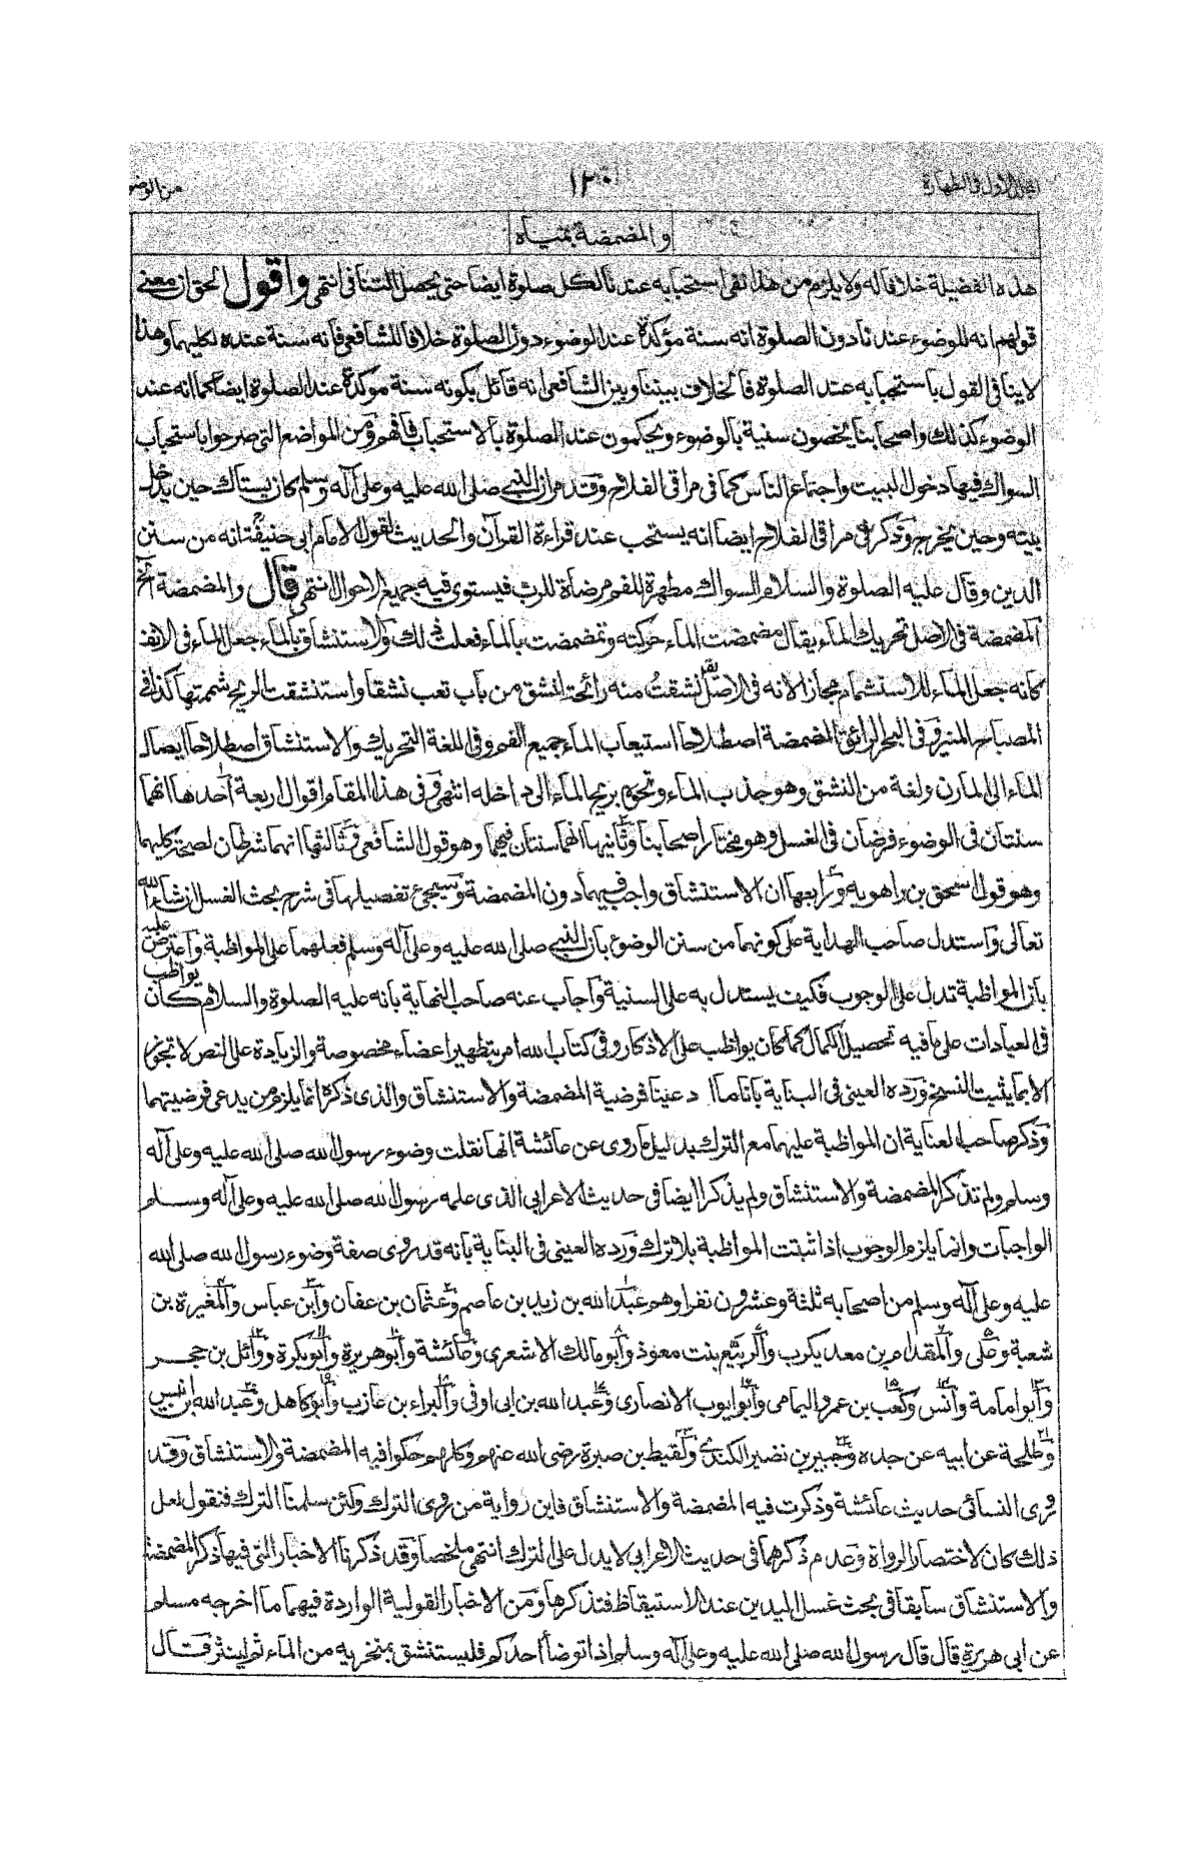 المجلد الاول فى الطهارة
١٢٠
من الوضو
والمضمضة بمياه
هذه الفضيلة خلافا له ولا يلزم من هذا نفى استحبابه عندنا لكل صلوة ايضا حتى يحصل التنافى انتهى واقول الحق ان معنى
قولهم انه للوضوء عندنا دون الصلوة انه سنة مؤكدة عند الوضوء دون الصلوة خلافا للشافعى فانه سنة عنده لكليهما وهذا
لا ينافى القول باستحبابه عند الصلوة فالخلاف بيننا وبين الشافعى انه قائل بكونه سنة موكدة عند الصلوة ايضا كما انه عند
الوضوء كذلك واصحابنا يخصون سنية بالوضوء ويحكمون عند الصلوة بالاستحباب فافهم ومن المواضع التى صرحوا باستحباب
السواك فيها دخول البيت واجتماع الناس كما فى مراقى الفلاح وقد مر ان النبى صلى الله عليه وعلى آله وسلم كان يستاك حين يدخل
بيته وحين يخرج وذكر فى مراقى الفلاح ايضا انه يستحب عند قراءة القرآن والحديث لقول الامام ابى حنيفة انه من سنن
الدين وقال عليه الصلوة والسلام السواك مطهرة للفم مرضاة للرب فيستوى فيه جميع الاحوال انتهى قال والمضمضة آلخ
المضمضة فى الاصل تحريك الماء يقال مضمضت الماء حركته وتمضمضت بالماء فعلت ذلك والاستنشاق بالماء جعل الماء فى الانف
كانه جعل الماء للاستنشام مجازا لانه فى الاصل يق نشقت منه رائحة انشق من باب تعب نشقا واستنشقت الريح شممتها كذا فى
المصباح المنير وفى البحر الرائق المضمضة اصطلاحا استيعاب الماء جميع الفم وفى اللغة التحريك والاستنشاق اصطلاحا ايصال
الماء الى المارن ولغة من النشق وهو جذب الماء ونحوه بريح الماء الى داخله انتهى وفى هذا المقام اقوال اربعة احدها انهما
سنتان فى الوضوء فرضان فى الغسل وهو مختار اصحابنا وثانيها انهما سنتان فيهما وهو قول الشافعى وثالثها انهما شرطان لصحة كليهما
وهو قول اسحق بن راهويه ورابعها ان الاستنشاق واجب فيهما دون المضمضة وسيجئ تفصيلها فى شرح بحث الغسل انشاء الله
تعالى واستدل صاحب الهداية على كونهما من سنن الوضوء بان النبى صلى الله عليه وعلى آله وسلم فعلهما على المواظبة واعترض عليه
بان المواظبة تدل على الوجوب فكيف يستدل به على السنية واجاب عنه صاحب النهاية بانه عليه الصلوة والسلام كان يواظب
فى العبادات على ما فيه تحصيل الكمال كما كان يواظب على الاذكار وفى كتاب الله امر بتطهير اعضاء مخصوصة والزيادة على النص لا تجوز
الا بما يثبت النسخ ورده العينى فى البناية بانا ما ادعينا فرضية المضمضة والاستنشاق والذى ذكره انما يلزم من يدعى فرضيتهما
وذكر صاحب العناية ان المواظبة عليهما مع الترك بدليل ما روى عن عائشة انها نقلت وضوء رسول الله صلى الله عليه وعلى آله
وسلم ولم تذكر المضمضة والاستنشاق ولم يذكرا ايضا فى حديث الاعرابى الذى علمه رسول الله صلى الله عليه وعلى آله وسلم
الواجبات وانما يلزم الوجوب اذا ثبتت المواظبة بلا ترك ورده العينى فى البناية بانه قد روى صفة وضوء رسول الله صلى الله
عليه وعلى آله وسلم من اصحابه ثلثة وعشرون نفرا وهم عبد الله بن زيد بن عاصم وعثمان بن عفان وابن عباس والمغيرة بن
شعبة وعلى والمقدام بن معد يكرب والربيع بنت معوذ وابو مالك الاشعرى وعائشة وابو هريرة وابو بكرة ووائل بن حجر
وابو امامة وانس وكعب بن عمرو اليمامى وابو ايوب الانصارى وعبد الله بن ابى اوفى والبراء بن عازب وابو كاهل وعبد الله بن انيس
وطلحة عن ابيه عن جده وجبير بن نضير الكندى ولقيط بن صبرة رضى الله عنهم وكلهم حكوا فيه المضمضة والاستنشاق وقد
روى النسائى حديث عائشة وذكرت فيه المضمضة والاستنشاق فاين رواية من روى الترك ولئن سلمنا الترك فنقول لعل
ذلك كان لاختصار الرواة وعدم ذكرهما فى حديث الاعرابى لا يدل على الترك انتهى ملخصا وقد ذكرنا الاخبار التى فيها ذكر المضمضة
والاستنشاق سابقا فى بحث غسل اليدين عند الاستيقاظ فتذكرها ومن الاخبار القولية الواردة فيهما ما اخرجه مسلم
عن ابى هريرة قال قال رسول الله صلى الله عليه وعلى آله وسلم اذا توضأ احدكم فليستنشق بمنخريه من الماء ثم لينثر وقال